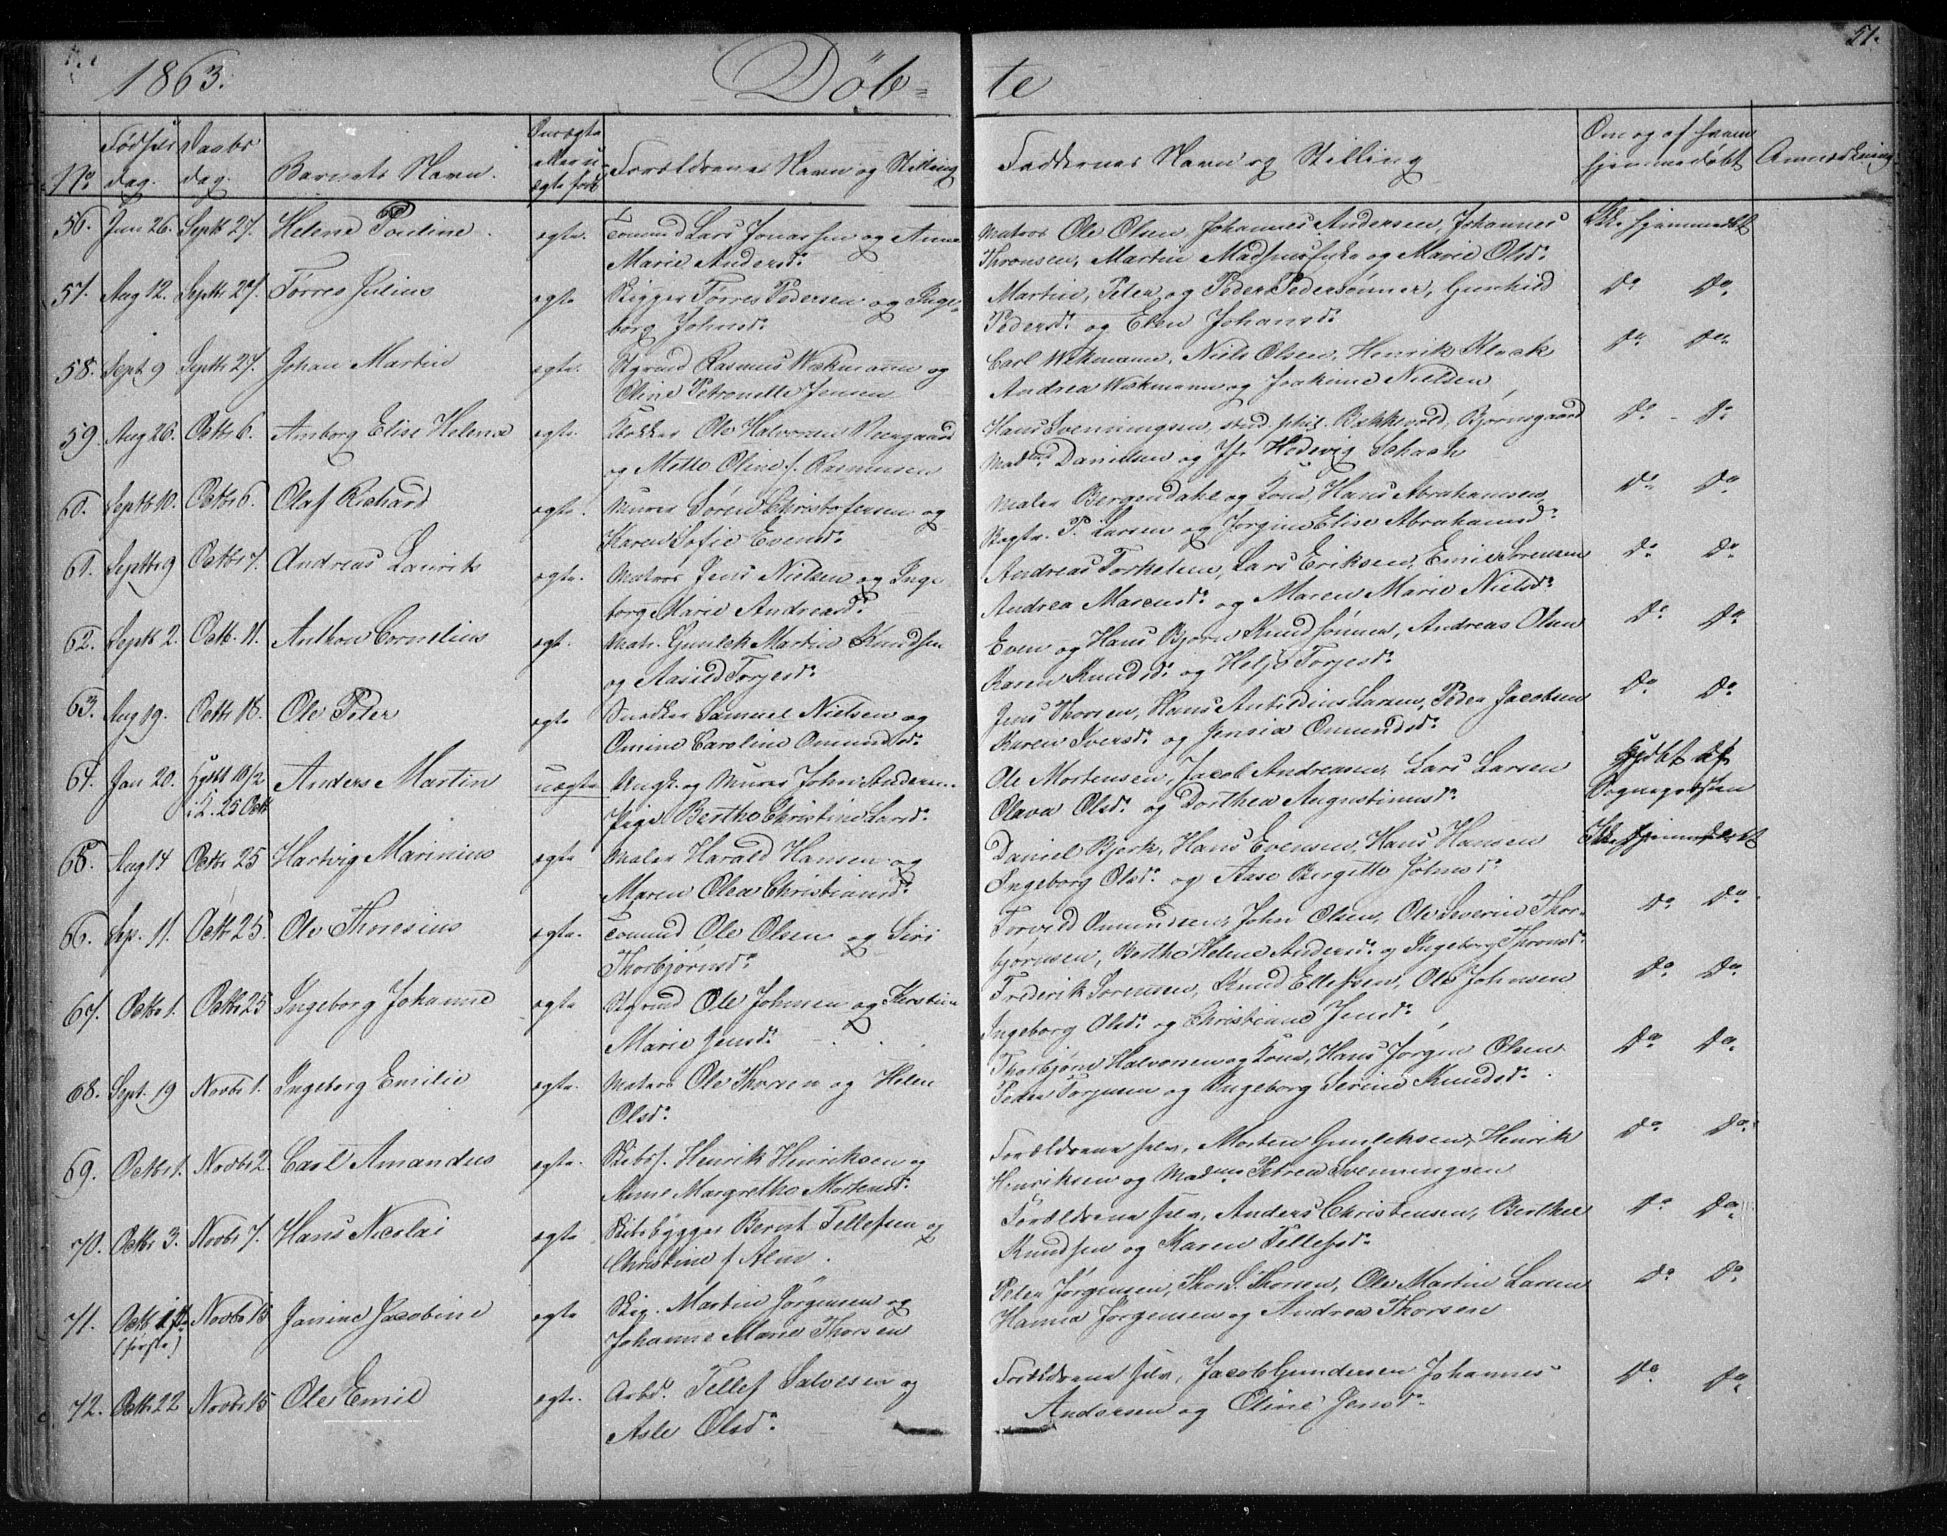 1863. Døb- te 51.
No Fødsels dag. Daabs dag. Barnets Navn. Om ægte eller uægte født Forældrenes Navn og Stilling Faddernes Navn og Stilling Om og af hvem hjemmedøbt Anmærkning
56. Jun 26. Septb 27. Helene Pouline. ægte. Tømmd Lars Jonassen og Anne Matros Ole Olsen, Johannes Andersen, Johannes Ikke hjemmedbt
Marie Andersd. Thronsen, Martin Madsens og Marie Olsd.
57. Aug 12. Septb 27. Tørres Julius ægte Rigger Tørres Pedersen og Inge- Martin, Peter og Peder Pedersønner, Gunhild Do Do
borg Johnsd. Pedersd. og Elen Johansd.
58. Sept 9 Septb 27. Johan Martin ægte. Styrmd Rasmus Wekmann og Carl Wekmann, Niels Olsen, Henrik Klock Do Do
Oline Petronelle Jensen Andrea Wekmann og Joakime Nielsen
59. Aug 26. Octbr 6. Amborg Elise Helene ægte. Klokker Ole Halvorsen Voregaard Hans Svenningsen, stud. phil. Bækkevold, Bjørnegaard Do - Do
og Mette Oline f. Rasmussen Madme Danielsen og Jfr Hedevig Schach
60. Septb 10. Octbr 6. Olaf Richard ægte. Murer Søren Christofersen og Maler Bergendahl og Kone, Hans Abrahamsen Do Do
Karen Sofie Evensd. P. Larsen og Jørgine Elise Abrahamsd.
61. Septbr 9 Octbr 7. Andreas Laurits ægte. Matros Jens Nielsen og Inge Andreas Torkelsen, Lars Eriksen, Emil Sørensen Do Do
borg Marie Andreasd. Andrea Marcusd. og Maren Marie Nielsd.
62. Septb 2. Octb. 11. Anthon Cornelius ægt. Matr. Gunlek Martin Knudsen Even og Hans Bjørn Knudsønner, Andreas Olsen Do Do
og Aasild Torjesd. Karen Knudsd. og Helje Torjesd.
63. Aug 19. Octb 18. Ole Peter ægte Snedker Samuel Nielsen og Jens Thorsen, Hans Larsen, Peder Jacobsen Do Do
Omine Caroline Omundsd. Karen Iversd. og Jensia Omundsd.
64. Jan 20. Hjdbt 10/2 Anders Martin uægte Ungk. og Murer John Andersen Ole Mortensen, Jacob Andreasen, Lars Larsen Hjdbt af
i K. 25 Octb Pige Berthe Christine Larsd. Olava Olsd. og Dorthea Augustinusd. Sognepresten
65. Aug 14 Octb 25 Hartvig Marinius ægte Maler Harald Hansen og Daniel Bjork, Hans Evensen, Hans Hansen Ikke hjemmedøbt
Maren Olea Christiansd. Ingeborg Olsd. og Aase Bergitte Johnsd.
66. Sep. 11. Octb 25. Ole Thoresius ægte. Tømmd Ole Olsen og Siri Torvild Omundsen, John Olsen, Ole Severin Thor- Do Do
Thorbjørnsd. bjørnsen, Berthe Helene Andersd. og Ingeborg Thronsd.
67. Octbr 1. Octbr 25 Ingeborg Johanne ægte Styrmd Ole Johnsen og Kirstine Frederik Sørensen, Knud Ellefsen, Ole Johnsen Do Do
Marie Jensd. Ingeborg Olsd. og Christiane Jensd.
68. Sept. 19 Novbr 1. Ingeborg Emilie ægte. Matros Ole Thorsen og Helen Thorbjørn Halvorsen og Kone, Hans Jørgen Olsen Do Do
Olsd. Peder Torjusen og Ingeborg Serine Knudsd.
69. Octbr 1. Novbr 2. Carl Amandus ægte. Skibsf. Henrik Henriksen og Forældrene selv, Morten Gunleksen, Henrik Do Do
Anne Margrethe Mortensd. Henriksen og Madme Petrea Svenningsen
70. Octbr 3. Novbr 7. Hans Nicolai ægte Skibsbygger Bernt Tellefsen og Forældrene selv, Anders Christensen, Berthe Do Do
Christine f. Alm. Knudsen og Karen Tellefsd.
71. Octb 1ste Novbr 15 Janine Jacobine ægte Skig. Martin Jørgensen og Peter Jørgensen, Thor S. Thorsen, Ole Martin Larsen Do Do
(første) Johanne Marie Thorsen Hanna Jørgensen og Andrea Thorsen
72. Octbr 22 Novbr 15 Ole Emil ægte. Arbd. Tellef Salvesen og Forældrene selv, Jacob Gundersen Johannes Do Do
Asle Olsd. Andersen og Oline Jensd.